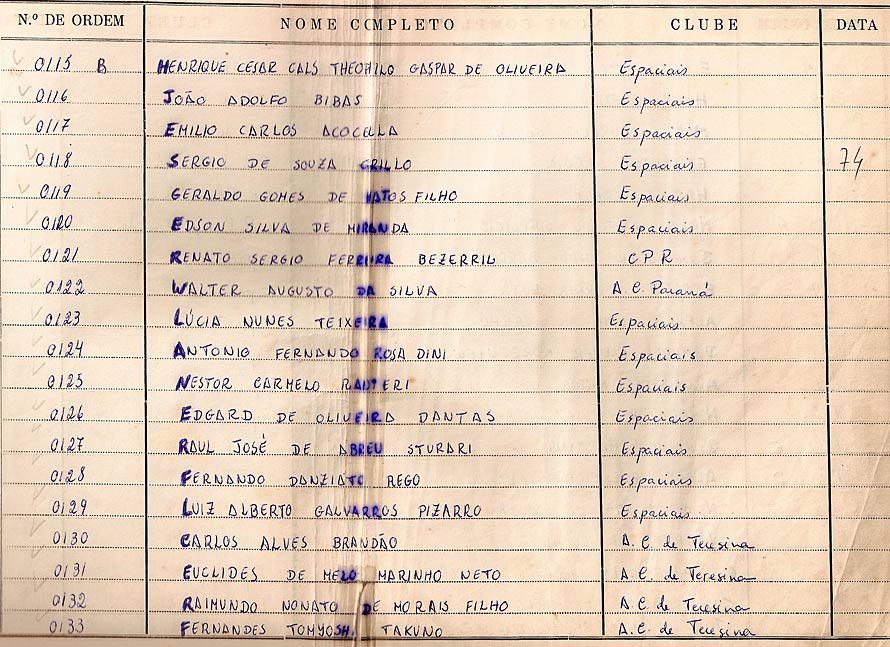 N.º DE ORDEM NOME COMPLETO CLUBE DATA
0115 B HENRIQUE CESAR CALS THEOPHILO GASPAR DE OLIVEIRA Espaciais
0116 JOÃO ADOLFO BIBAS Espaciais
0117 EMILIO CARLOS ACOCELLA Espaciais
0118 SERGIO DE SOUZA GRILLO Espaciais 74
0119 GERALDO GOMES DE MATOS FILHO Espaciais
0120 EDSON SILVA DE MIRANDA Espaciais
0121 RENATO SERGIO FERREIRA BEZERRIL CPR
0122 WALTER AUGUSTO DA SILVA A. C. Paraná
0123 LÚCIA NUNES TEIXEIRA Espaciais
0124 ANTONIO FERNANDO ROSA DINI Espaciais
0125 NESTOR CARMELO Espaciais
0126 EDGARD DE OLIVEIRA DANTAS Espaciais
0127 RAUL JOSÉ DE ABREU STURARI Espaciais
0128 FERNANDO DANZIATO REGO Espaciais
0129 LUIZ ALBERTO GALVARROS PIZARRO Espaciais
0130 CARLOS ALVES BRANDÃO A. C. de Teresina
0131 EUCLIDES DE MELO MARINHO NETO A. C. de Teresina
0132 RAIMUNDO NONATO DE MORAIS FILHO A. C. de Teresina
0133 FERNANDES TAKUNO A. C. de Teresina